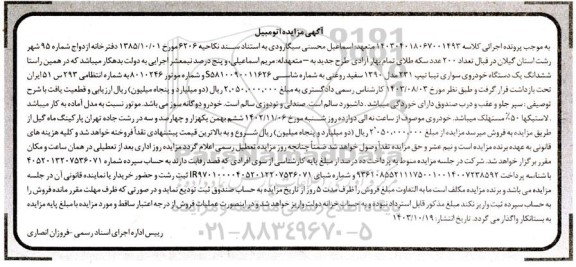 آگهی مزایده اتومبیل
به موجب پرونده اجرائی کلاسه ۱۴۰۳۰۴۰۱۸۰۶۷۰۰۱۴۹۳ متعهد: اسماعیل محسنی سیگارودی به استناد سند نکاحیه ۶۲۰۶ مورخ ۱۳۸۵/۱۰/۰۱ دفترخانه ازدواج شماره ۹۵ شهر
رشت استان گیلان در قبال تعداد ۲۰۰ عدد سکه طلای تمام بهار آزادی طرح جدید به – متعهدله: مریم اسماعیلی و پنج درصد نیم عشر اجرایی به ادرت بدهکار میباشد که در همین راستا
ششدانگ یک دستگاه خودروی سواری تیبا تیپ ۲۳۱ مدل ۱۳۹۰ سفید روغنی به شماره شاسی S۵۸۱۱۰۰۹۰۰۱۱۶۲۶ و شماره موتور ۸۰۱۰۲۴۶ به شماره انتظامی ۲۹۳ س ۵۱ ایران
تحت بازداشت قرار گرفت و طبق نظر مورخ ۱۴۰۳/۰۸/۰۳ کارشناس رسمی دادگستری به مبلغ ۲/۰۵۰/۰۰۰/۰۰۰ ریال (دو میلیارد و پنجاه میلیون) ریال ارزیابی و قطعیت یافت با شرح
توصیفی: سپر جلو و عقب و درب صندوق دارای خوردگی میباشد. داشبورد سالم است. صندلی و تودوزی سالم است. خودرو دوگانه سوز می باشد. موتور نسبت به مدل آماده به کار میباشد
. لاستیکها ۵۰٪ مستهلک میباشد. خودروی موصوف از ساعت نه الی دوازده روز شنبه مورخ ۱۴۰۳/۱۱/۰۶ ششم بهمن یکهزار و چهارصد و سه در رشت جاده تهران پارکینگ ماه گیل از
طریق مزایده به فروش میرسد مزایده از مبلغ ۲/۰۵۰/۰۰۰/۰۰۰ ریال (دو میلیارد و پنجاه میلیون) ریال شروع و به بالاترین قیمت پیشنهادی نقداً فروخته خواهد شد و کلیه هزینه های
قانونی به عهده برنده مزایده است و نیم عشر و حق مزایده نقداً وصول خواهد شد ضمناً چنانچه روز مزایده تعطیل رسمی اعلام گردد مزایده روز اداری بعد از تعطیلی در همان ساعت و مکان
مقرر برگزار خواهد شد. شرکت در جلسه مزایده منوط به پرداخت ده درصد از مبلغ پایه کارشناسی از سوی افرادی که قصد رقابت دارند به حساب سپرده شماره ۴۰۵۲۰۱۳۲۲۰۷۵۳۶۰۷۱
با شناسه پرداخت
ثبت رشت و حضور خریدار یا نماینده قانونی آن در جلسه
مزایده می باشد و برنده مزایده مکلف است مابه التفاوت مبلغ فروش را ظرف مدت ۵ روز از تاریخ مزایده به حساب صندوق ثبت تودیع نماید و در صورتی که ظرف مهلت مقرر مانده فروش را
به حساب سپرده ثبت واریز نکند مبلغ مذکور قابل استرداد نبوده و به حساب خزانه دولت واریز خواهد شد و در اینصورت عملیات فروش از درجه اعتبار ساقط و مورد مزایده با مبلغ پایه مزایده
به بستانکار واگذار می گردد. تاریخ انتشار: ۱۴۰۳/۱۰/۱۹
رییس اداره اجرای اسناد رسمی -فروزان انصاری
۰۲۱-۸۸۳۴۹۶۷۰-۵